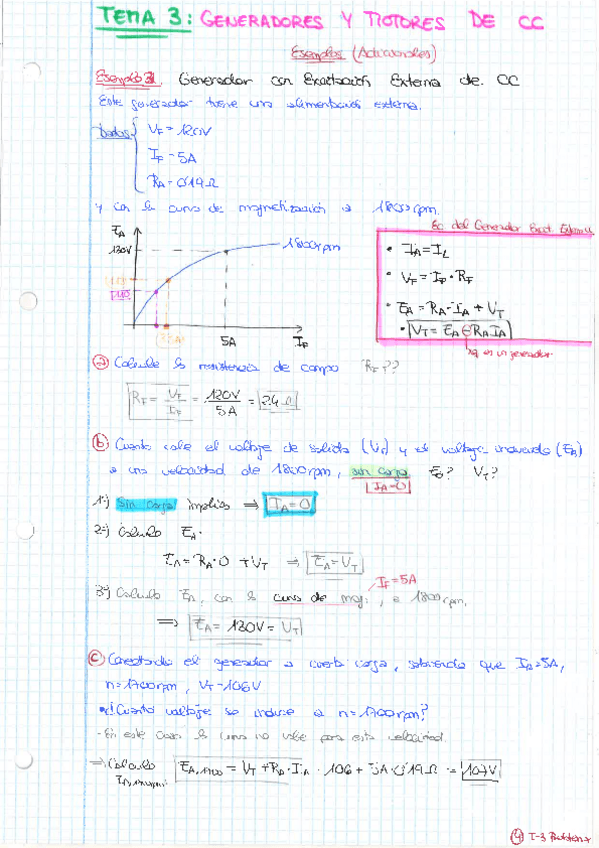 TEMA 3: GENERADORES Y MOTORES DE CC
Ejemplos (Adicionales)
Ejemplo 3.1. Generador con Excitación Externa de CC
Este generador tiene una alimentación externa.
Datos
VF = 120V
IF = 5A
RA = 0'19Ω
y con la curva de magnetización a 1800rpm.
EA
130V
1800rpm
110
5A
IF
Ec. del Generador Excit. Externa
• IA = IL
• VF = IF · RF
• EA = RA · IA + VT
• VT = EA ⊖ RA IA
es un generador
a) Calcule la resistencia de campo RF??
RF = VF / IF = 120V / 5A = 24 Ω
b) Cuanto vale el voltaje de salida (VT) y el voltaje inducido (EA)
a una velocidad de 1800rpm, sin carga EA? VT?
IA=0
1º) sin carga implica ⇒ IA=0
2º) Calculo EA.
EA = RA · 0 + VT ⇒ EA = VT
IF = 5A
3º) Calculo EA, con la curva de mag., a 1800rpm.
⇒ EA = 130V = VT
c) Conectando el generador a cierta carga, sabiendo que IA=5A,
n=1700rpm, VT=106V
• ¿Cuanto voltaje se induce a n=1700rpm?
- En este caso la curva no vale para esta velocidad.
⇒ Calculo EA,1700 = VT + RA · IA = 106 + 5A · 0'19Ω = 107V
4 T-3